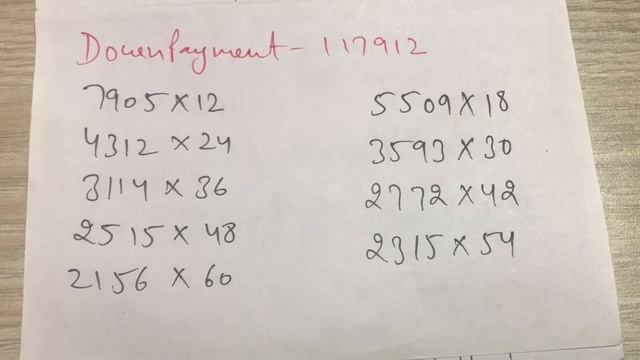 Downpayment - 117912
7905 x 12
5509 x 18
4312 x 24
3593 x 30
3114 x 36
2772 x 42
2515 x 48
2315 x 54
2156 x 60